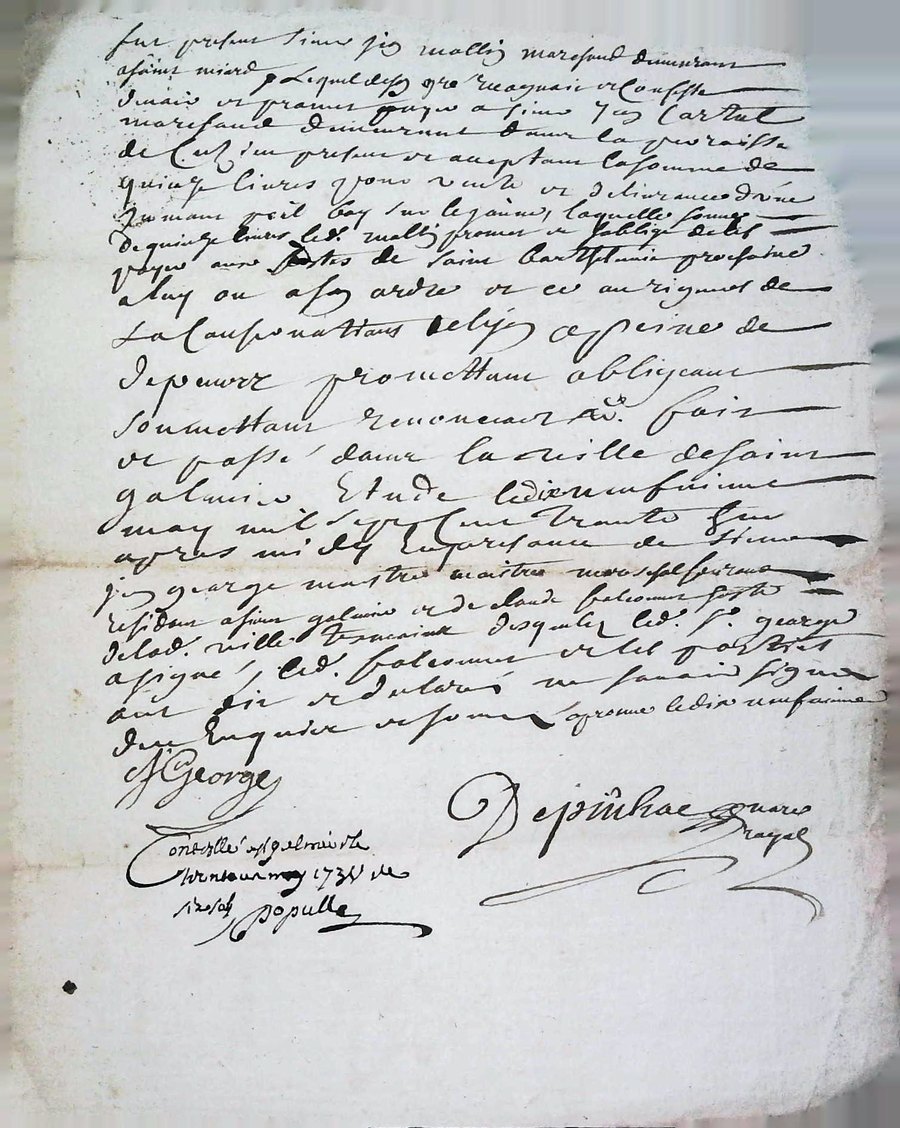 fut present sieur jn mallin marchand demeurant
a saint miard lequel de son gré recognait et confesse
devair et promet payer a sieur jn Cartal
marchand demeurant dans la parraisse
de Cuzieu present et aceptant la somme de
quinze livres pour vente et delivrance d'une
jumant poil bay sur le jaune, laquelle somme
de quinze livres led. mallin promet et soblige de les
payer aux festes de saint barthelemie prochaine
a luy ou a son ordre et ce au rigueur de
la Conservations de lyon a peine de
depens promettant obligeant
soumettant renoncant &c. fait
et passé dans la ville de saint
galmier Etude le dix neufvieme
may mil sept cent trante
apres midy En presance de sieur
jn george maitre mareschal
residant a saint galmier et de claude falconnet hoste
de lad. ville tesmoins desquelz led. sr. george
a signé, led. falconnet et les parties
ont dit et declaré ne savair signer
de ce Enquis et sommé aprouve le dix neufvieme
George
Depinhac notaire
royal
Controllé a st galmier le
trente un may 173 de
six sols
Populle